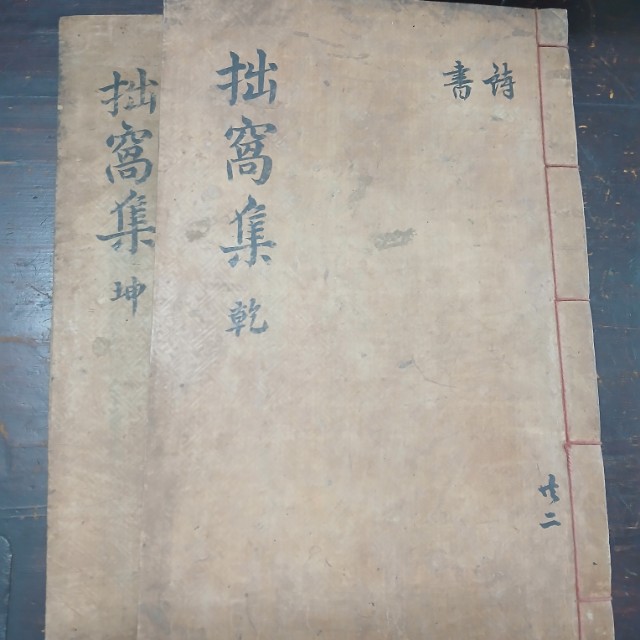 詩
書
拙窩集 乾
共二
拙窩集 坤